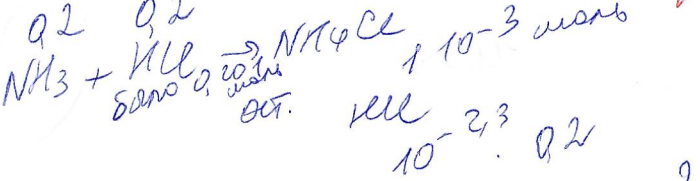 0,2 0,2
NH3 + HCl → NH4Cl 1 10-3 моль
было 0,201 моль
ост. HCl
10-2,3 . 0,2